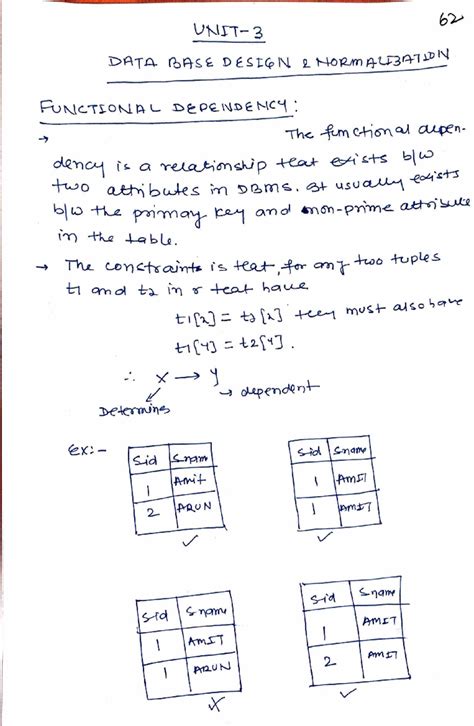 62
UNIT-3
DATA BASE DESIGN & NORMALIZATION
FUNCTIONAL DEPENDENCY:
→ The functional depen-
dency is a relationship that exists b/w
two attributes in DBMS. It usually exists
b/w the primay key and non-prime attribute
in the table.
→ The constraints is that, for any two tuples
t1 and t2 in r that have
t1[x] = t2[x] they must also have
t1[y] = t2[y].
∴ x → y
→ dependent
Determines
Ex:-
Sid Sname
1 Amit
2 ARUN
✓
Sid Sname
1 AMIT
1 AMIT
✓
Sid Sname
1 AMIT
1 ARUN
✗
Sid Sname
1 AMIT
2 AMIT
✓